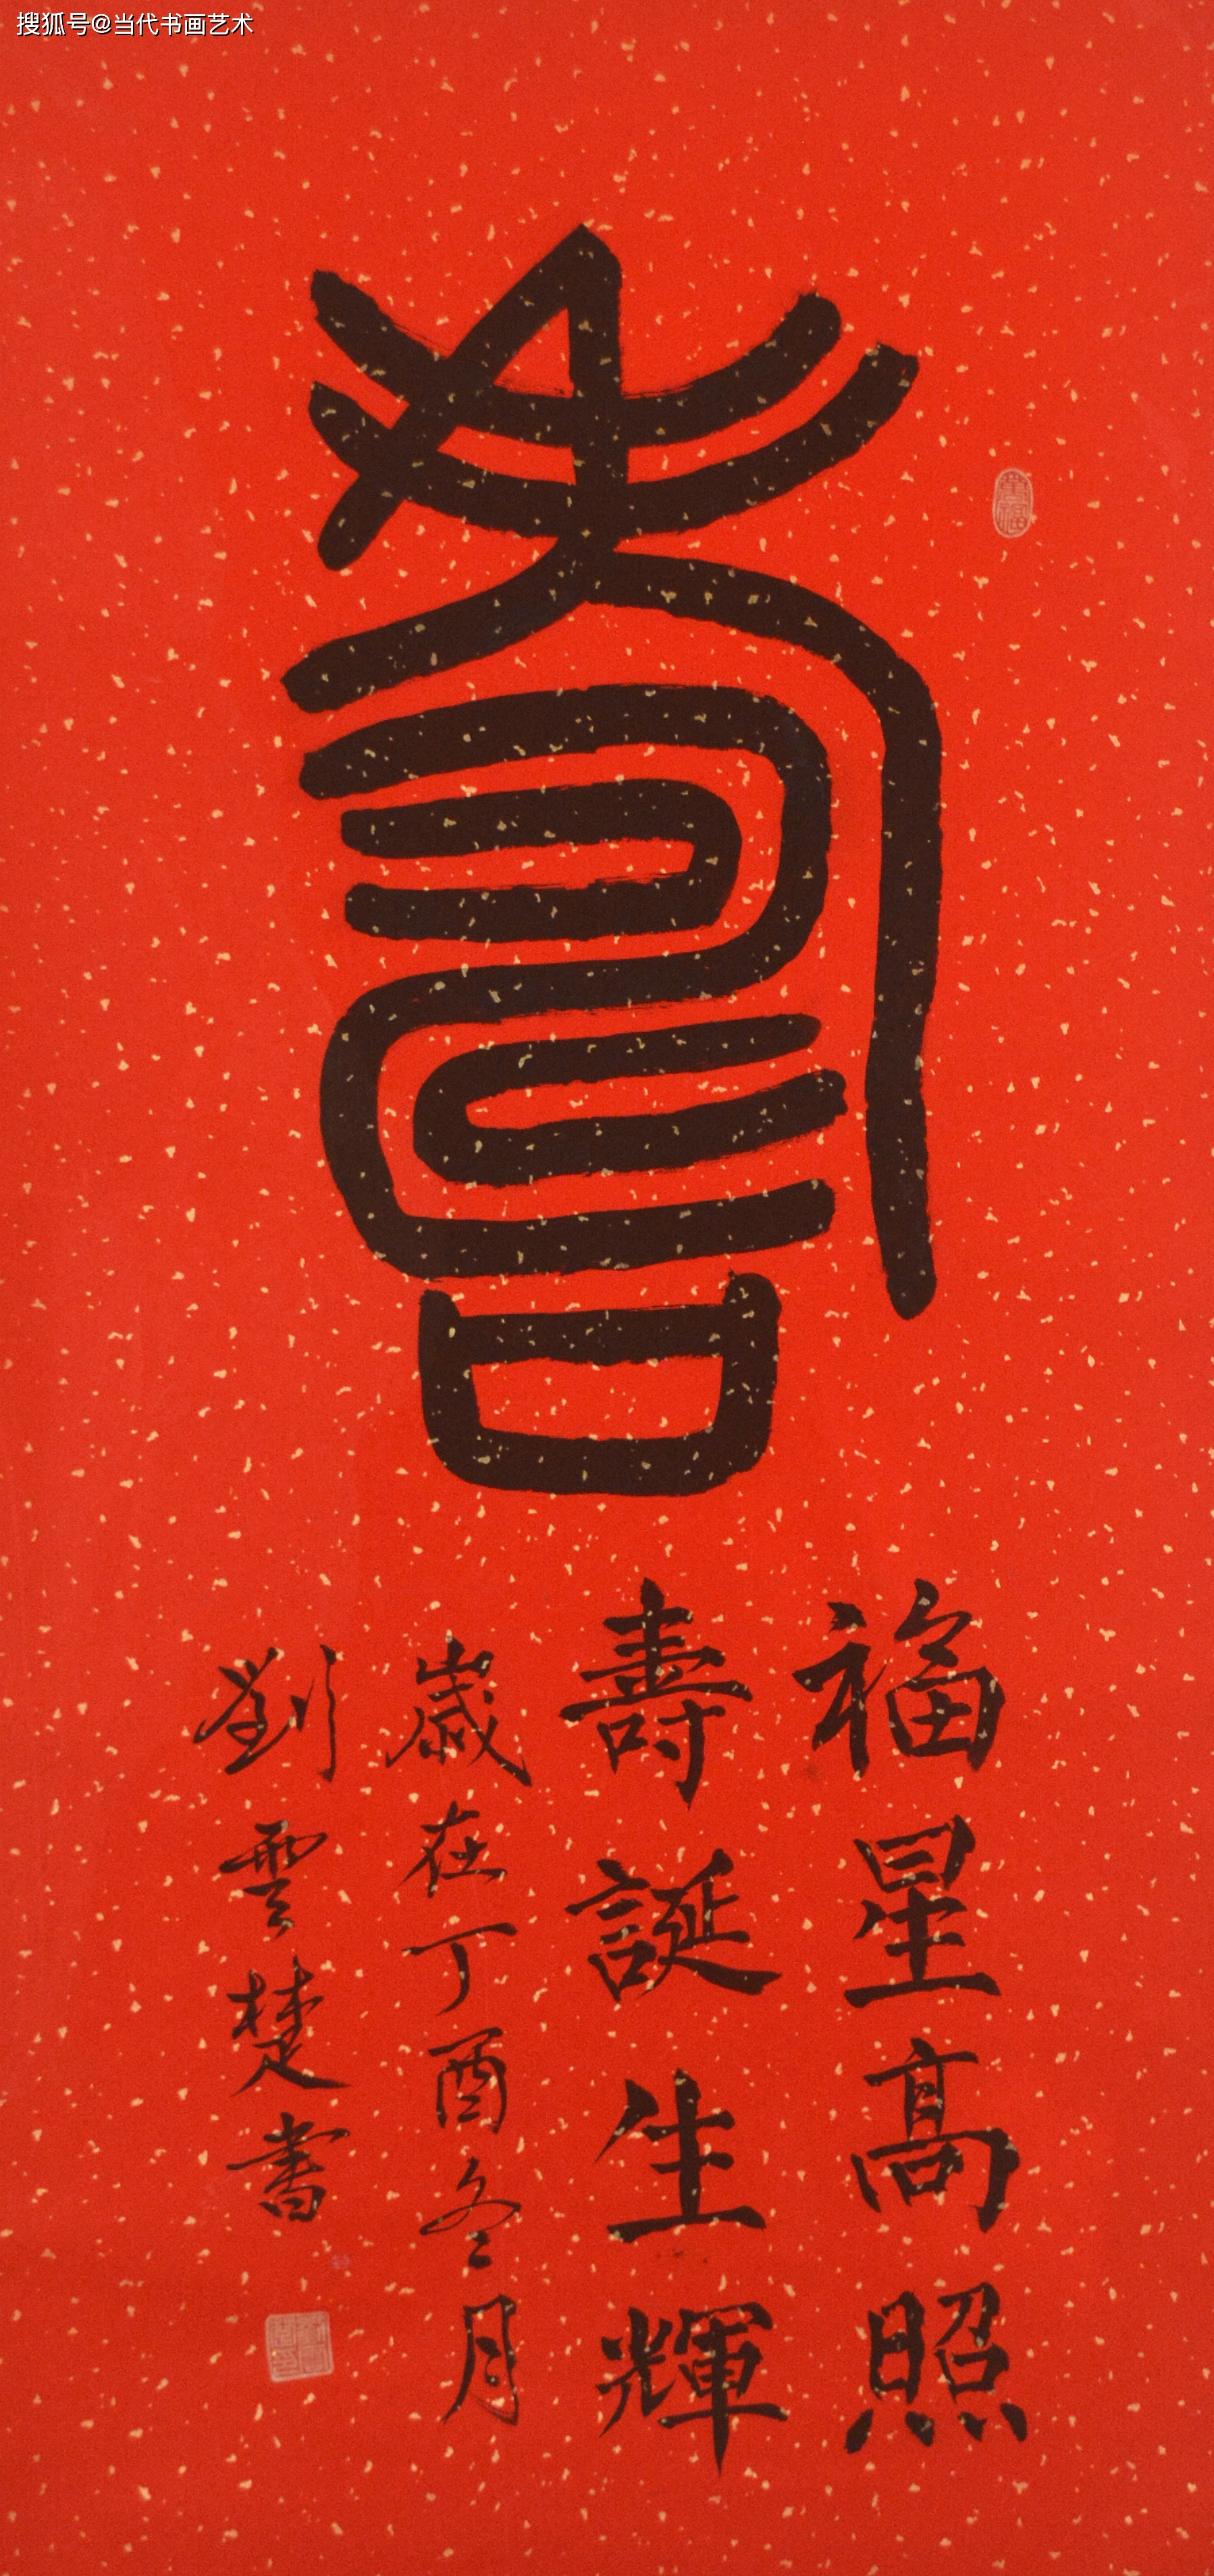 搜狐号@当代书画艺术
壽
福星高照
壽誕生輝
歲在丁酉冬月
劉雲楚書